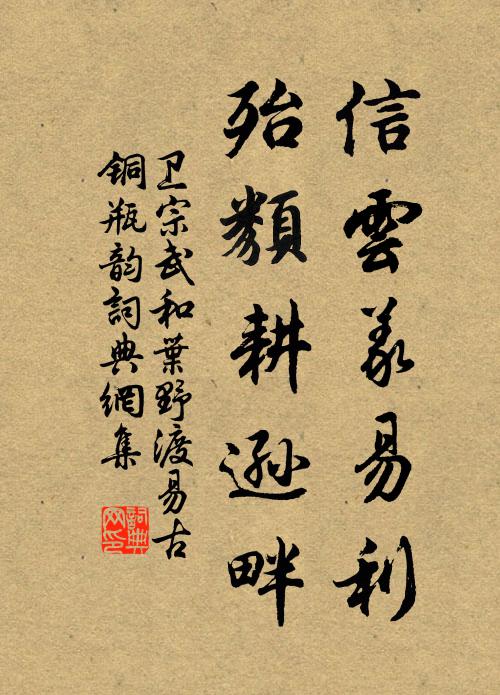 信雲義易利
殆類耕遜畔
卫宗武和葉野渡易古
銅瓶韵詞典網集
詞典网印